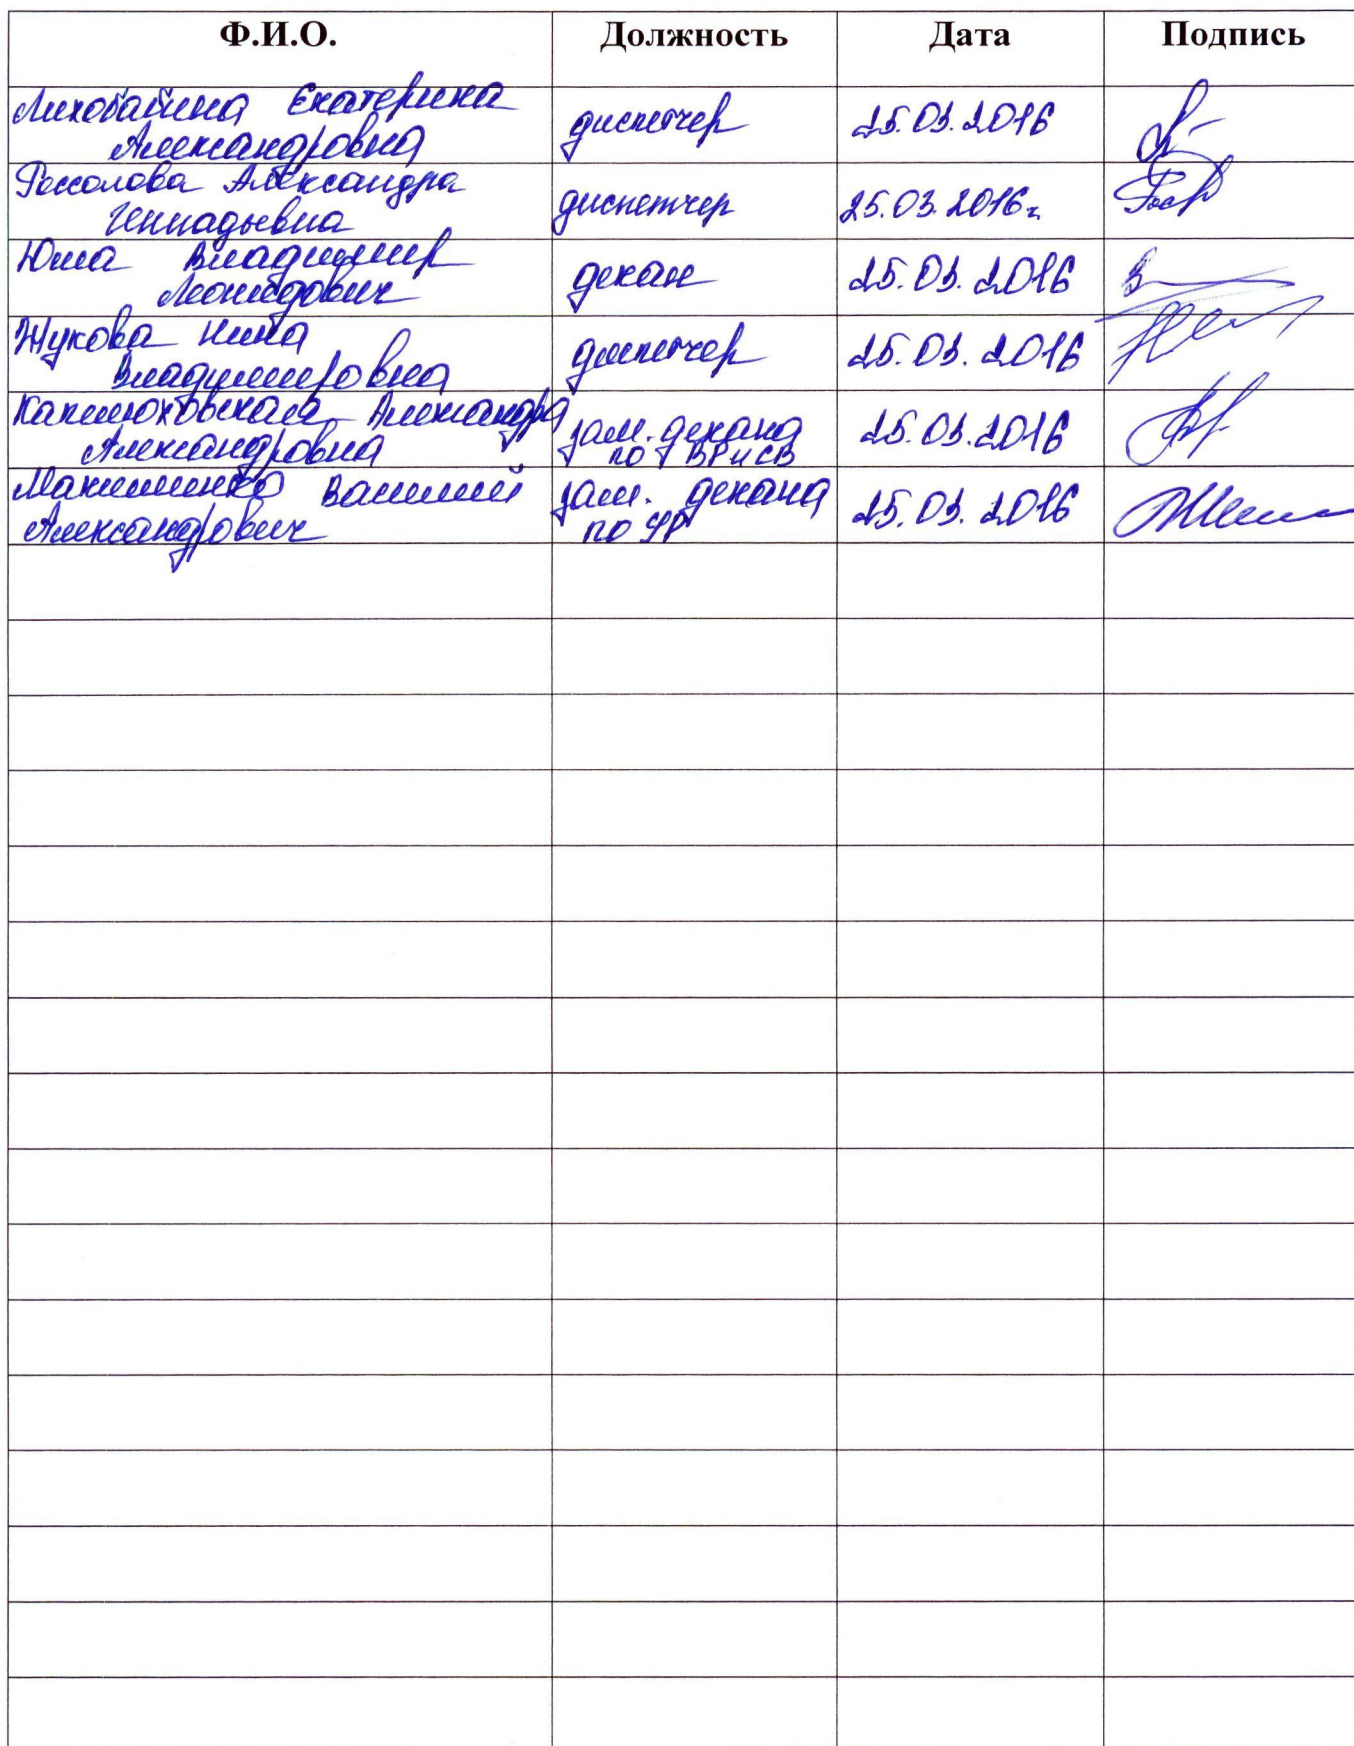 Ф.И.О. Должность Дата Подпись
Лихобабина Екатерина
Александровна диспетчер 25.03.2016
Россолова Александра
Геннадьевна диспетчер 25.03.2016г
Юша Владимир
Леонидович декан 25.03.2016
Жукова Нина
Владимировна диспетчер 25.03.2016
Александра
Александровна зам. декана 25.03.2016
по ВР и СВ
Максименко Василий зам. декана
Александрович по УР 25.03.2016